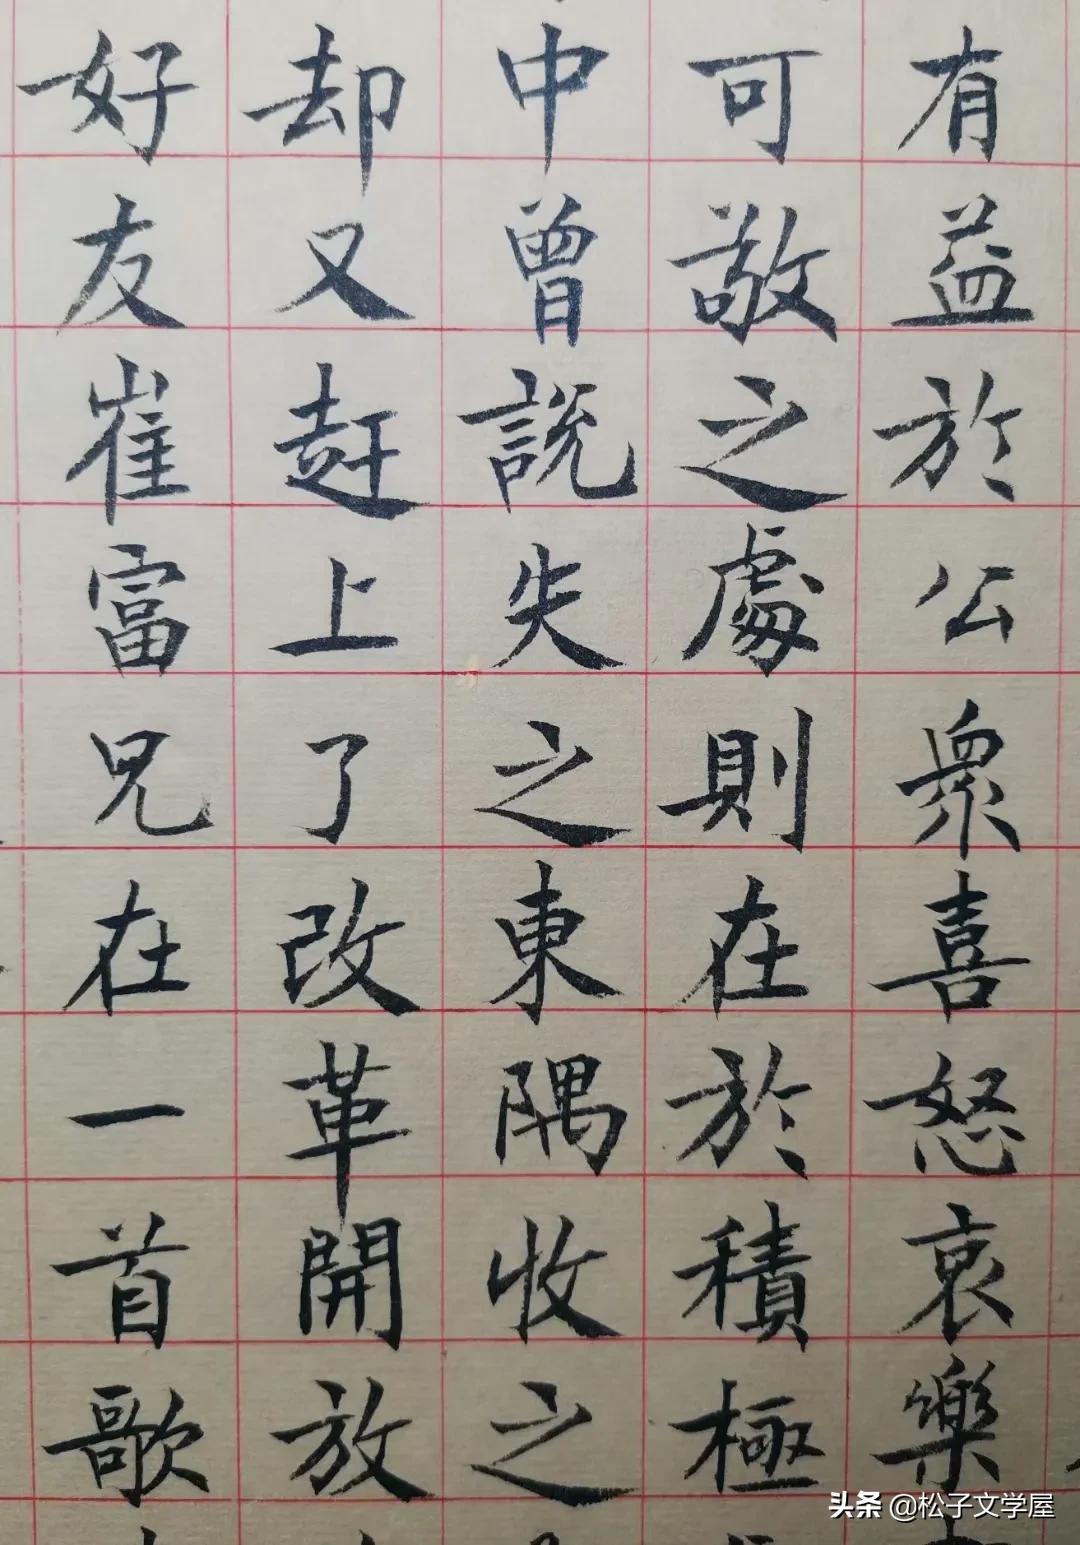 有益於公眾喜怒哀樂
可敬之處則在於積極
中曾說失之東隅收之
却又趕上了改革開放
好友崔富兄在一首歌
头条 @松子文学屋